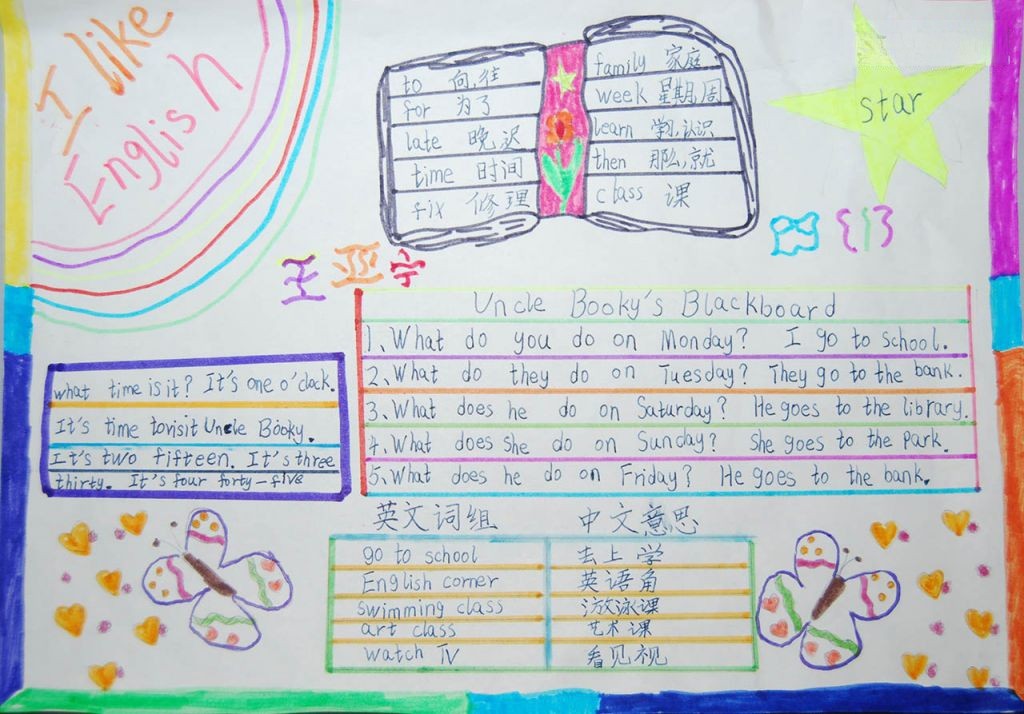 I like
English
to 向,往
for 为了
late 晚,迟
time 时间
fix 修理
family 家庭
week 星期,周
learn 学习,认识
then 那么,就
class 课
star
王亚宁
四(1)
Uncle Booky's Blackboard
1、What do you do on Monday? I go to school.
2、What do they do on Tuesday? They go to the bank.
3、What does he do on Saturday? He goes to the library.
4、What does she do on Sunday? She goes to the park.
5、What does he do on Friday? He goes to the bank.
what time is it? It's one o'clock.
It's time to visit Uncle Booky.
It's two fifteen. It's three
thirty. It's four forty-five
英文词组 中文意思
go to school 去上学
English corner 英语角
swimming class 游泳课
art class 艺术课
watch TV 看见视